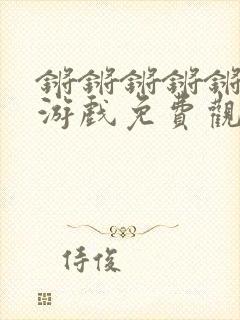 锵锵锵锵锵
游戏免費觀
侍俊